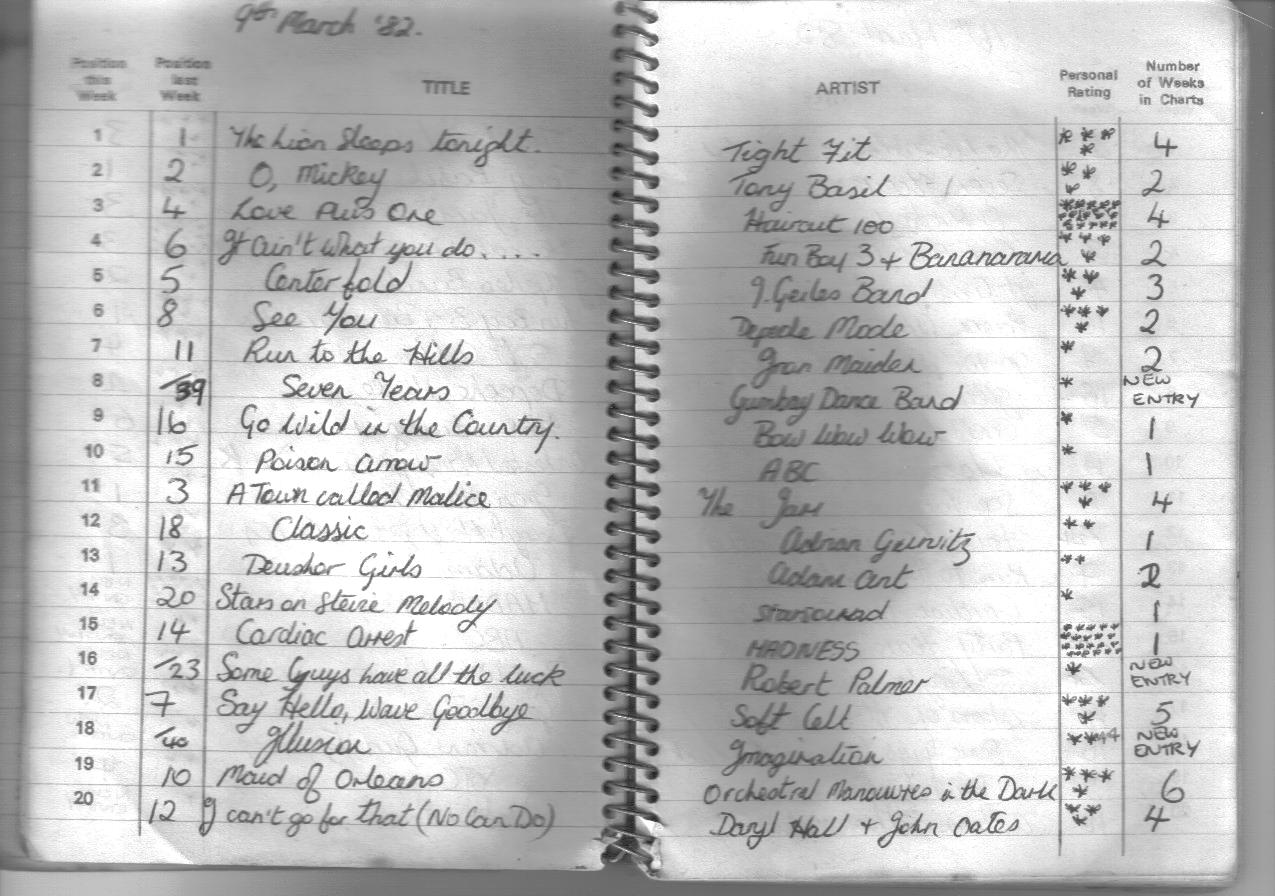 9th March '82.
Position this Week Position last Week TITLE ARTIST Personal Rating Number of Weeks in Charts
1 1 The Lion Sleeps tonight. Tight Fit **** 4
2 2 O, Mickey Tony Basil *** 2
3 4 Love Plus One Haircut 100 4
4 6 It Ain't what you do.... Fun Boy 3 + Bananarama **** 2
5 5 Centerfold J. Geiles Band *** 3
6 8 See You Depeche Mode **** 2
7 11 Run to the Hills Iron Maiden * 2
8 /39 Seven Years Gumbay Dance Band * NEW ENTRY
9 16 Go Wild in the Country. Bow Wow Wow * 1
10 15 Poison Arrow ABC * 1
11 3 A Town called Malice The Jam **** 4
12 18 Classic Adrian Gurvitz ** 1
13 13 Deusher Girls Adam Ant ** 2
14 20 Stars on Stevie Melody Starsound * 1
15 14 Cardiac Arrest MADNESS 1
16 /23 Some Guys have all the luck Robert Palmer * NEW ENTRY
17 7 Say Hello, Wave Goodbye Soft Cell **** 5
18 /40 Illusion Imagination NEW ENTRY
19 10 Maid of Orleans Orchestral Manouvres in the Dark **** 6
20 12 I can't go for that (No Can Do) Daryl Hall + John Oates **** 4